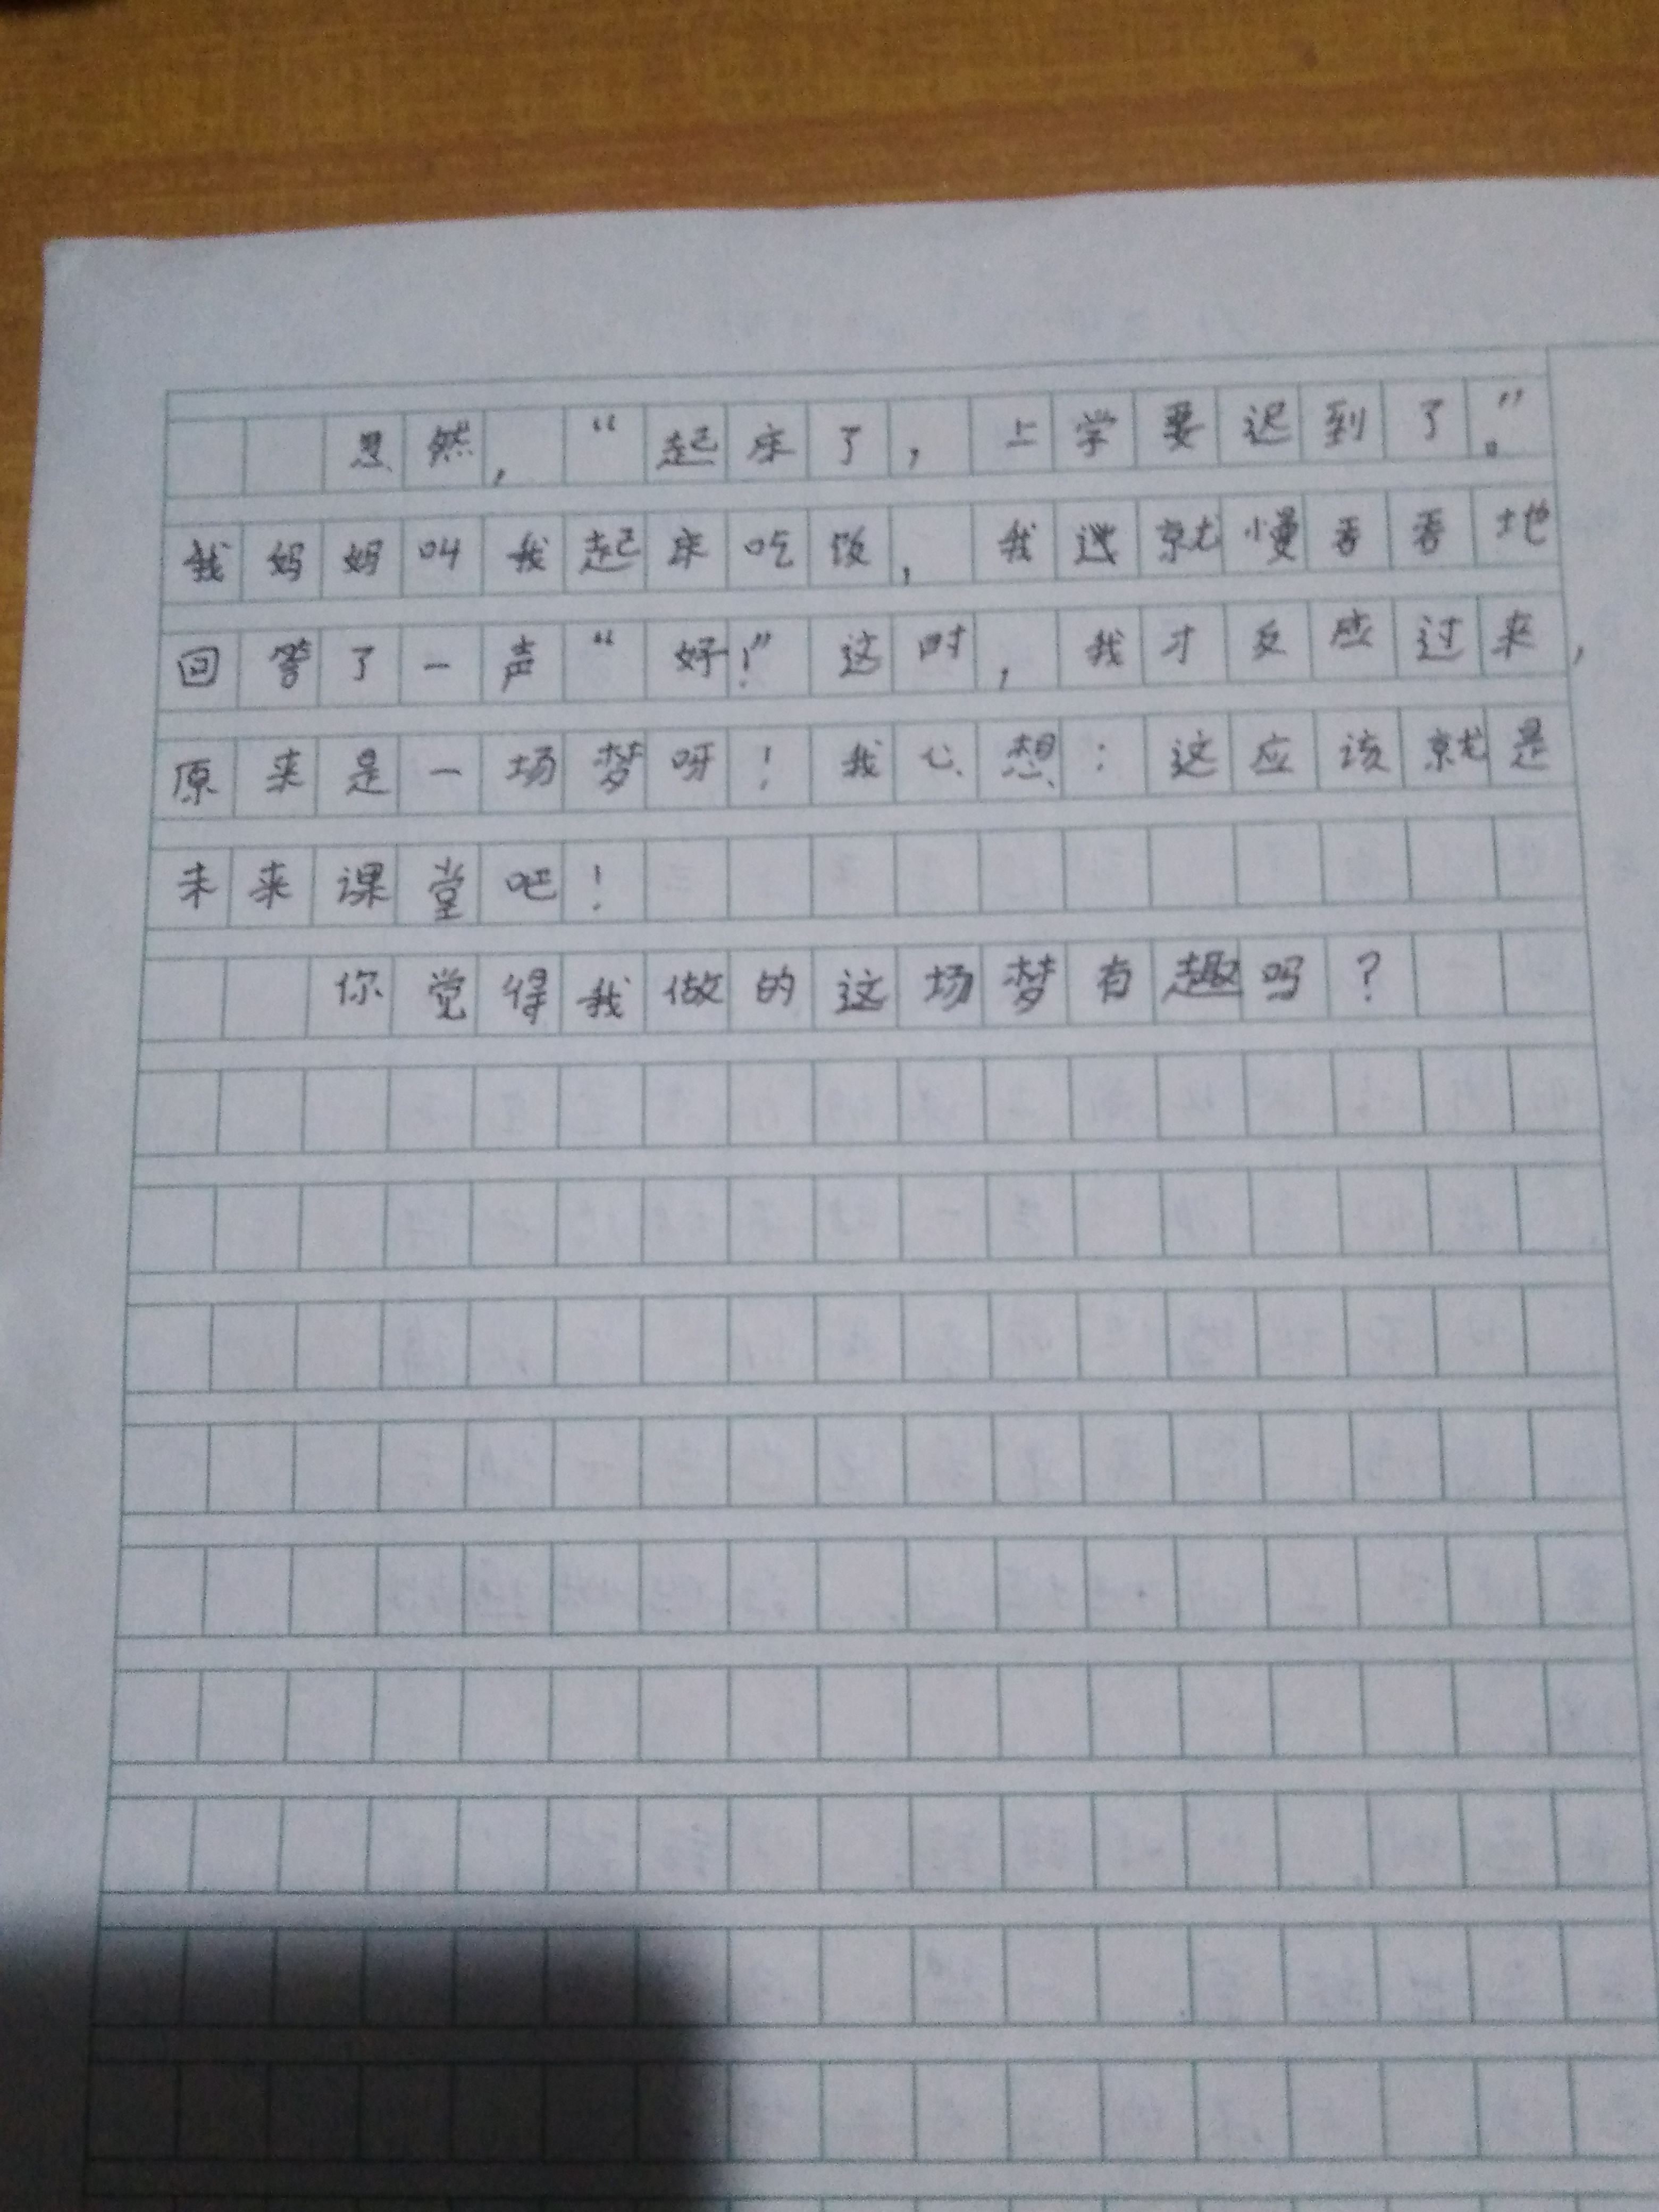 忽然，“起床了，上学要迟到了。”
我妈妈叫我起床吃饭，我就慢吞吞地
回答了一声“好！”这时，我才反应过来，
原来是一场梦呀！我心想：这应该就是
未来课堂吧！
你觉得我做的这场梦有趣吗？